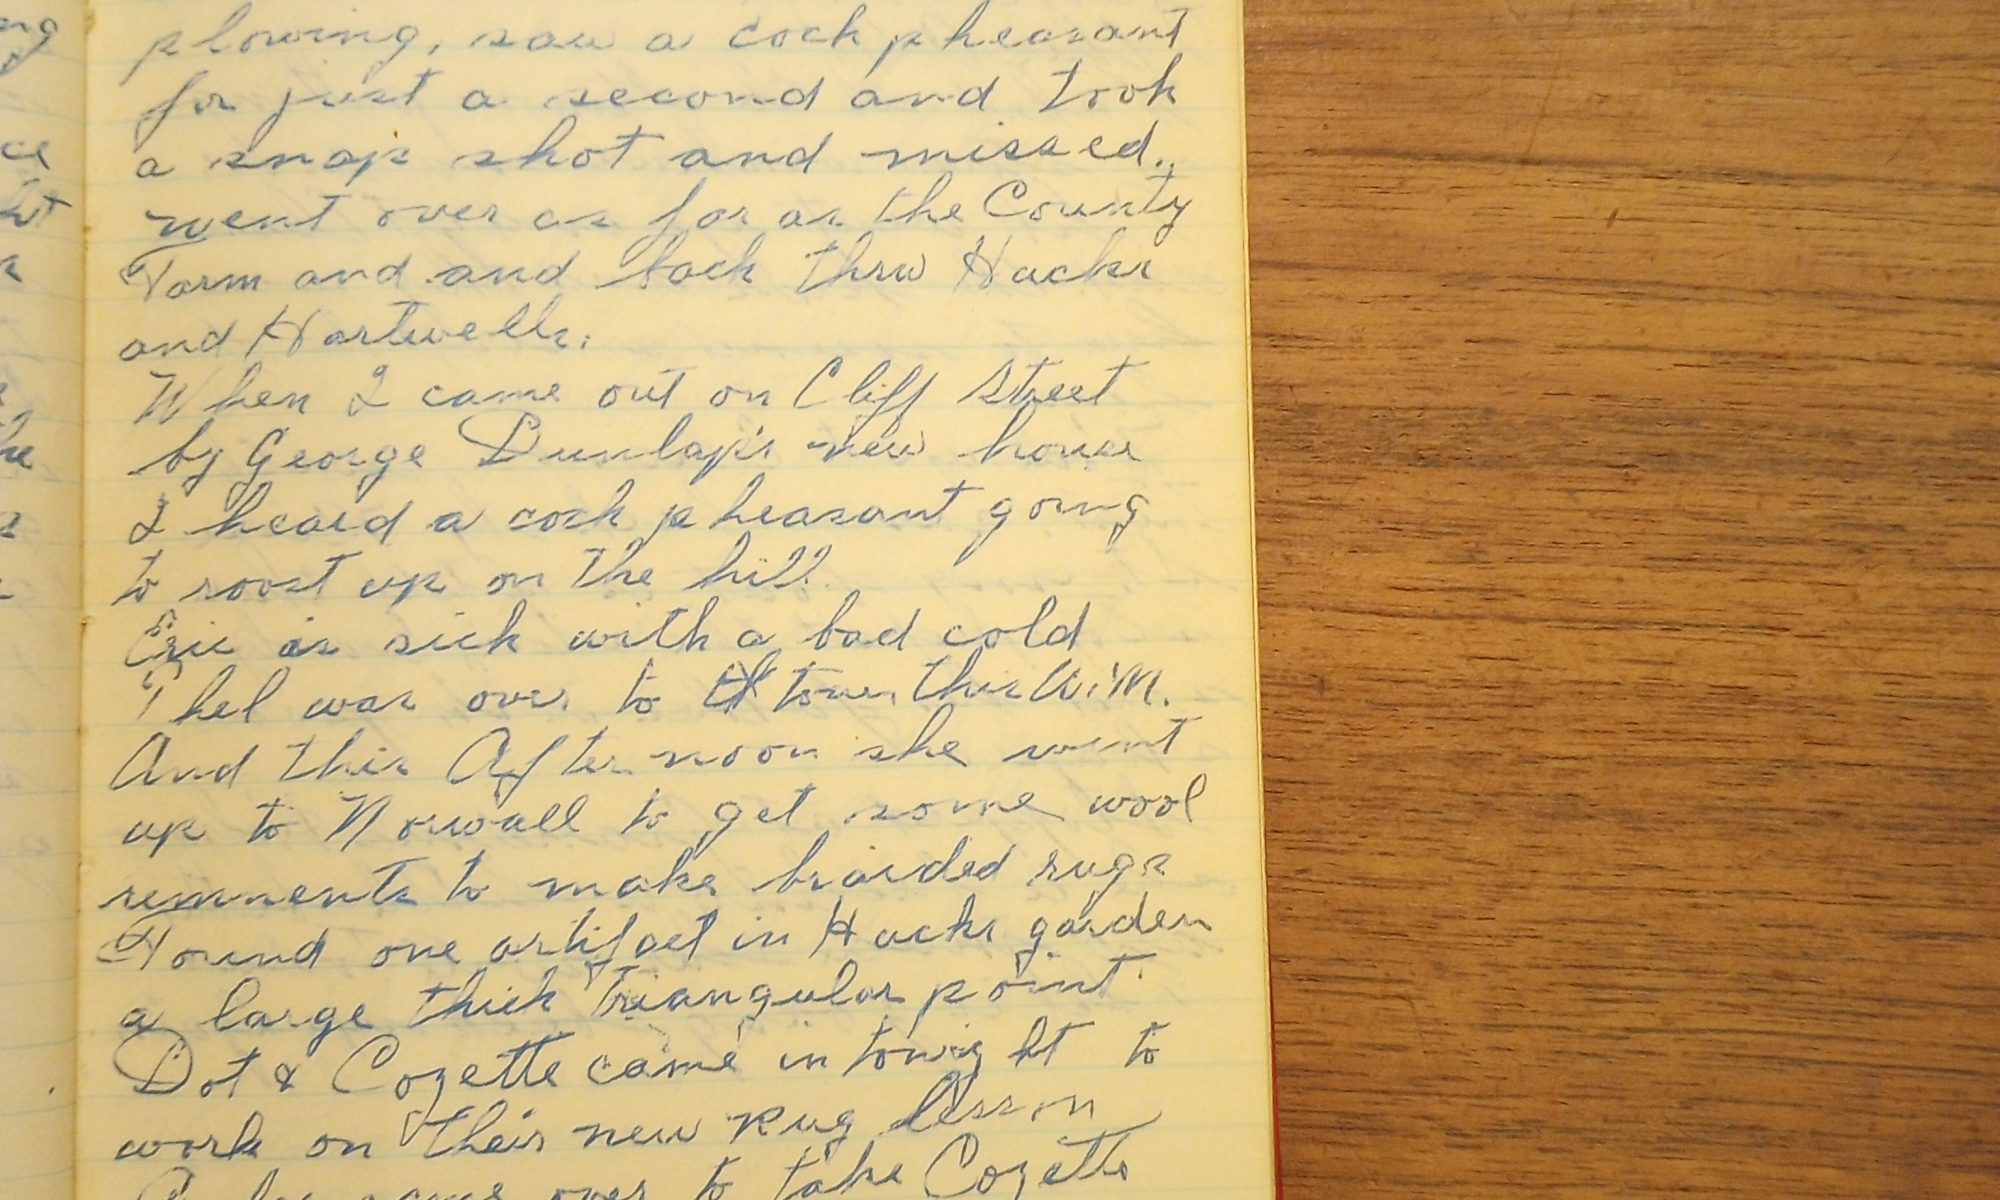 plowing, saw a cock pheasant
for just a second and took
a snap shot and missed.
went over as far as the County
Farm and and back thru Hacks
and Hartwells.
When I came out on Cliff Street
by George Dunlap's new house
I heard a cock pheasant going
to roost up on the hill.
Eric is sick with a bad cold
Thel was over to town this A.M.
And this Afternoon she went
up to Norwall to get some wool
remnents to make braided rugs
Found one artifact in Hacks garden
a large thick triangular point.
Dot & Cozette came in tonight to
work on their new Rug lesson
came over to take Cozette